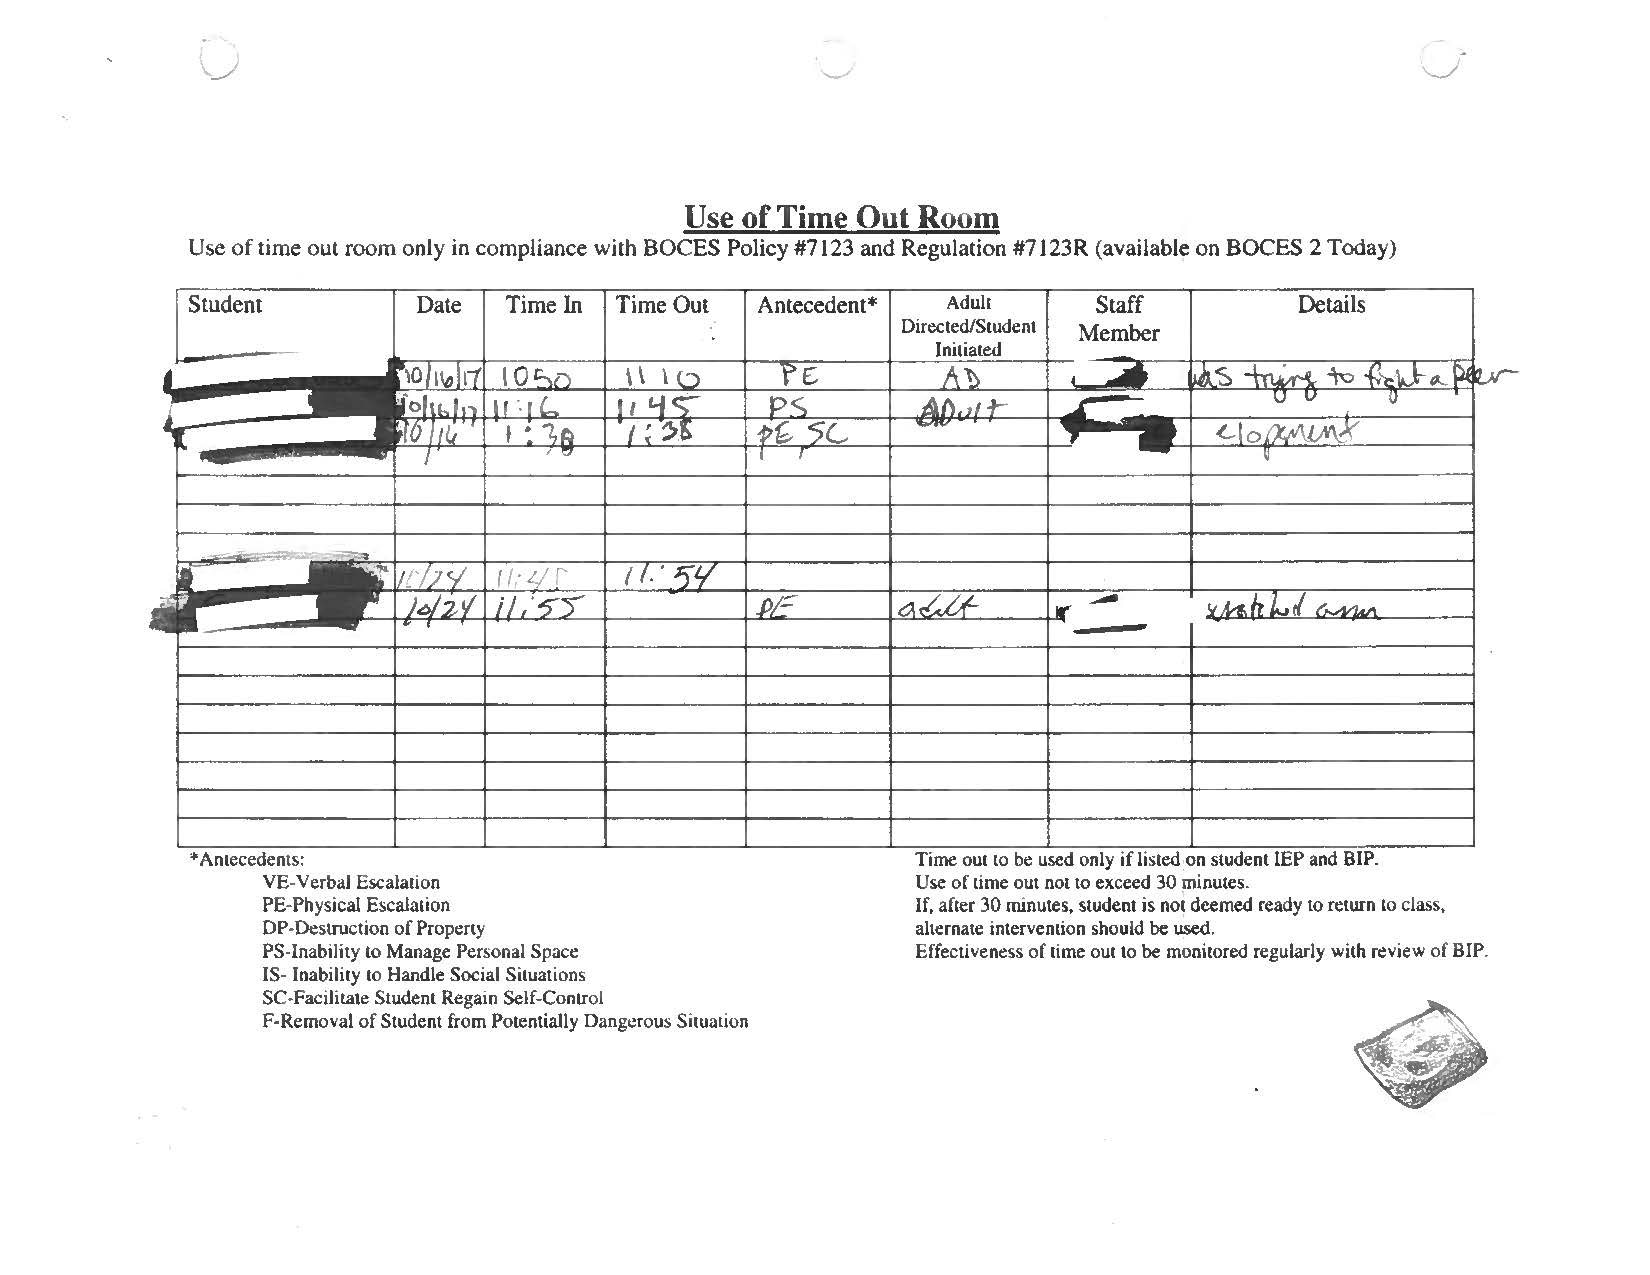 Use of Time Out Room
Use of time out room only in compliance with BOCES Policy #7123 and Regulation #7123R (available on BOCES 2 Today)
Student Date Time In Time Out Antecedent* Adult Directed/Student Initiated Staff Member Details
10/16/17 1050 11 10 PE AD was trying to fight a peer
10/16/17 11:16 11 45 PS Adult
10/16 1:38 PE, SC elopement
10/24 11:54
10/24 11:55 PE adult scratched arm
*Antecedents:
VE-Verbal Escalation
PE-Physical Escalation
DP-Destruction of Property
PS-Inability to Manage Personal Space
IS- Inability to Handle Social Situations
SC-Facilitate Student Regain Self-Control
F-Removal of Student from Potentially Dangerous Situation
Time out to be used only if listed on student IEP and BIP.
Use of time out not to exceed 30 minutes.
If, after 30 minutes, student is not deemed ready to return to class,
alternate intervention should be used.
Effectiveness of time out to be monitored regularly with review of BIP.